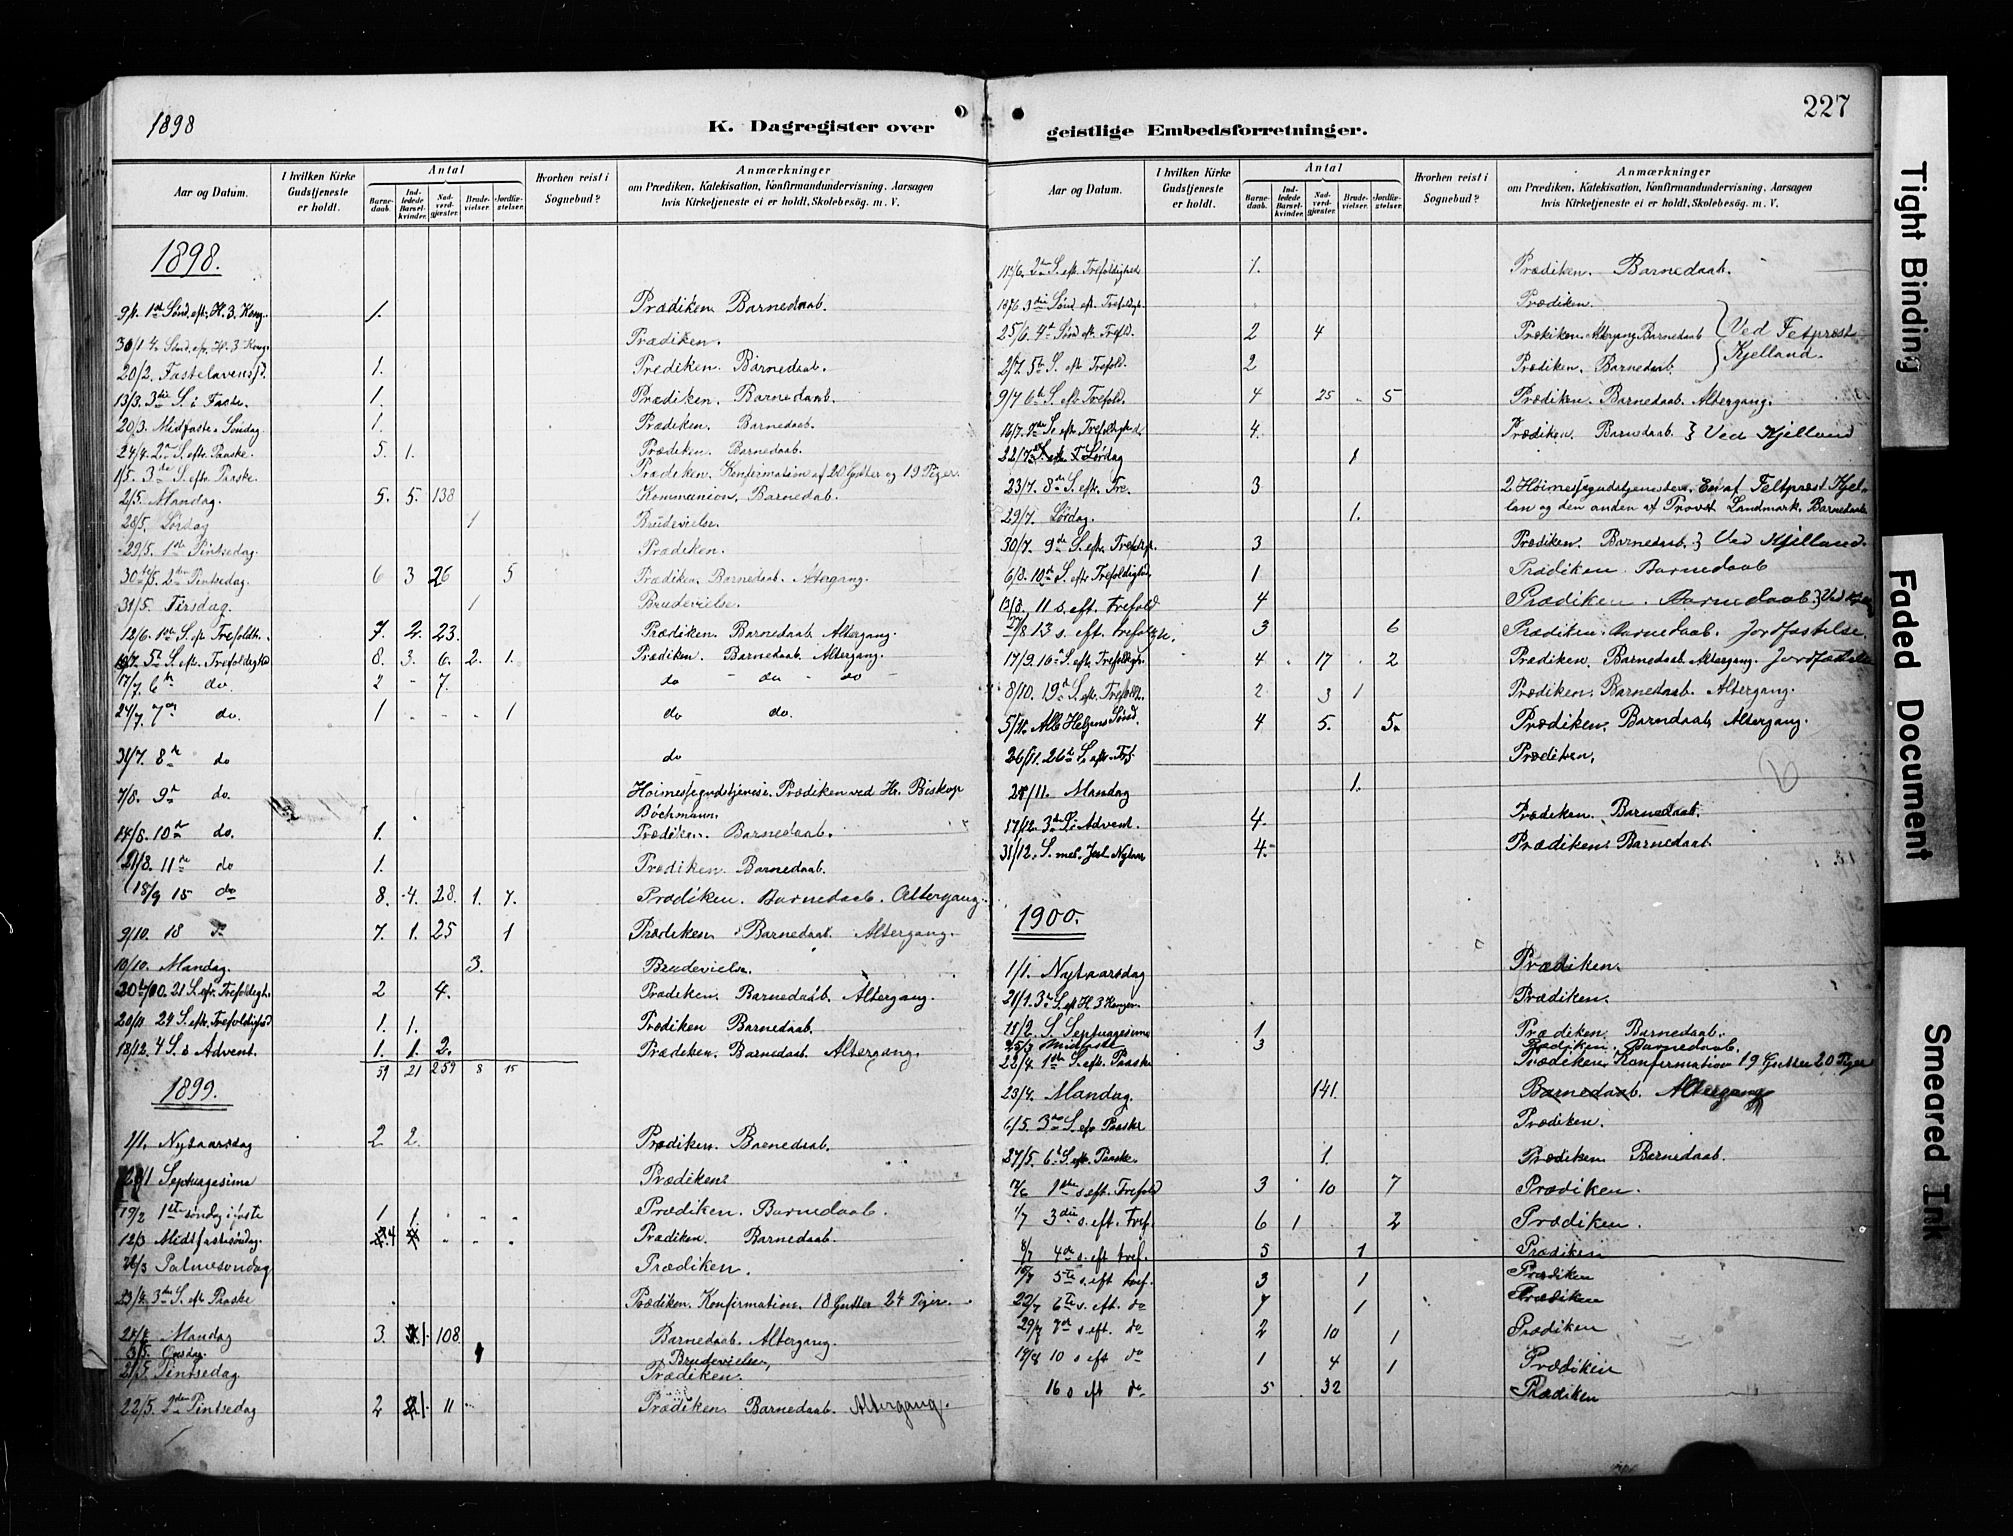 1898
K. Dagregister over
Aar og Datum.
I hvilken Kirke Gudstjeneste er holdt.
Antal
Barnedaab.
Indledede Barselkvinder.
Nadverdgjester.
Brudevielser.
Jordfæstelser.
Hvorhen reist i Sognebud?
Anmærkninger
om Prædiken, Katekisation, Konfirmandundervisning, Aarsagen
hvis Kirketjeneste ei er holdt, Skolebesøg. m. V.
1898.
9/1. 1ste Sønd. eft. H. 3. Kong. 1. Prædiken Barnedaab.
30/1 4. Sønd. eft. H. 3 Kong. Prædiken.
20/2. Fastelavenssd. 1. Prediken. Barnedaab.
13/3. 3die S. i Faste. 1. Prædiken. Barnedaab.
20/3. Midfaste Søndag 1. Prædiken. Barnedaab.
24/4. 2n S. eftr. Paaske. 5. 1. Prædiken. Barnedaab.
1/5. 3de S. eftr. Paaske. Prædiken. Konfirmation af 20 Gutter og 19 Piger.
2/5. Mandag. 5. 5. 138 Kommunion, Barnedab.
28/5. Lørdag 1 Brudevielse.
29/5. 1ste Pintsedag. Prædiken.
30te/5. 2den Pintsedag. 6 3 26 5 Prædiken. Barnedaab. Altergang.
31/5. Tirsdag. 1 Brudevielse.
12/6. 1ste S. ef. Trefoldh. 7. 2. 23. Prædiken. Barnedaab Altergang.
10/7. 5te S. eftr. Trefoldighed 8. 3. 6. 2. 1. Prædiken. Barnedaab. Altergang.
17/7. 6te do. 2 - 7. do - do - do -
24/7. 7de do. 1 1 do do.
31/7. 8de do do
7/8. 9de do. Høimessegudstjeneste. Prædiken ved Hr. Biskop
Bøchmann.
14/8. 10de do. 1. Prædiken. Barnedaab.
21/8. 11te do 1. Prædiken. Barnedaab.
18/9 15 do 8. 4. 28. 1. 7. Prædiken. Barnedaab. Altergang.
9/10. 18 7. 1. 25 1 Prædiken Barnedaab. Altergang.
10/10. Mandag. 3. Brudevielse.
30te/10. 21 S. eft. Trefoldigh. 2 4. Prædiken. Barnedaab. Altergang.
20/11 24 S. eftr. Trefoldighed 1. 1. Prædiken Barnedaab.
18/12. 4 S. i Advent. 1. 1. 2. Prædiken. Barnedaab Altergang.
59 21 259 8 15
1899.
1/1. Nytaarsdag 2 2. Prædiken. Barnedaab.
Septuagesima Prædiken
19/2 1ste søndag i faste 1 1. Prædiken. Barnedaab.
12/3 Midtfastesøndag. 4 Prædiken. Barnedaab
26/3 Palmesøndag Prædiken.
23/4. 3die S. eft Paaske Prædiken. Konfirmation. 18 Gutter 24 Piger.
24/4 Mandag 3. 1. 108. Barnedaab. Altergang.
3/5. Onsdag. 1 Brudevielse,
21/5. Pintsedag Prædiken.
22/5. 2den Pintsedag 2 1. 11 Prædiken Barnedaab. Altergang.
227
geistlige Embedsforretninger.
Aar og Datum.
I hvilken Kirke Gudstjeneste er holdt.
Antal
Barnedaab.
Indledede Barselkvinder.
Nadverdgjester.
Brudevielser.
Jordfæstelser.
Hvorhen reist i Sognebud?
Anmærkninger
om Prædiken, Katekisation, Konfirmandundervisning, Aarsagen
hvis Kirketjeneste ei er holdt, Skolebesøg. m. V.
11/6. 2den S. eft. Trefoldighed 1. Prædiken. Barnedaab.
18/6 3die Sønd. eft. Trefoldgh. Prædiken.
25/6. 4de Sønd eft Trefld. 2 4 Prækiken. Altergang Barnedaab } Ved Feltpræst
2/7. 5te S. eft Trefold. 2 Prædiken. Barnedaab. } Kjelland.
9/7 6te S. eft Trefold. 4 25 5 Prædiken. Barnedaab. Altergang.
16/7. 7de S. eft. Trefoldighed 4. Prædiken. Barnedaab. } Ved Kjelland
22/7 Lørdag 1
23/7. 8de S. eftr. Tre. 3 2 Høimessegudstjenester. En af Feltpræst Kjel-
lan og den anden af Provst Landmark. Barnedaab
29/7. Lørdag. 1.
30/7. 9de S. eft. Trefoldgh. 3 Prædiken. Barnedaab. } Ved Kjelland.
6/8. 10de S. eftr Trefoldighed 1. Prædiken. Barnedaab
13/8. 11 s. eft. trefold 4 Prædiken. Barnedaab } Ved
27/8 13 s. eft. trefoldgh. 3 6 Prædiken. Barnedaab. Jordfæstelse.
17/9. 16de S. eftr. Trefoldigh. 4 17 2 Prædiken. Barnedaab. Altergang. Jordfæstelse
8/10. 19de S. eftr. Trefoldh. 2 3 1 Prædiken. Barnedaab. Altergang.
5/11. Alle Helgens Sønd. 4 5. 5. Prædiken. Barndaab, Altergang.
26/11. 26de S. eftr. Tref. Prædiken.
28/11. Mandag 1.
17/12. 3die S. i Advent. 4. Prædiken. Barnedaab.
31/12. S. mel. Jul Nytaar 4. Prædiken Barnedaab.
1900.
1/1. Nytaarsdag Prædiken.
21/1. 3de S. eft H. 3 Konger. Prædiken.
11/2. S. Septuagesima 1 Prædiken. Barnedaab.
25/3 Midfaste 3 Prædiken. Barnedaab.
22/4. 1ste S. eft. Paaske Prædiken Konfirmation 19 Gutter 20 Piger
23/4. Mandag. 141. Barnedaab. Altergang
6/5. 3die S. eft Paaske Prædiken.
27/5. 6te S. eft. Paaske. 1. Prædiken Barnedaab.
17/6 1ste s. eft. Trefold 3 10 7 Prædiken.
1/7 3die s. eft. tref. 6 1 2 Prædiken.
8/7 4de s. eft tref. 5 1 Prædiken
15/7 5te s. eft tref. 3 1 Prædiken
22/7 6te s. eft. do 7 1 Prædiken
29/7 7de s. eft do 2 10 1 Prædiken
19/8 10 s eft do 1 4 1 Prædiken
16 s eft do 5 32 Prædiken
Tight Binding
Faded Document
Smeared Ink